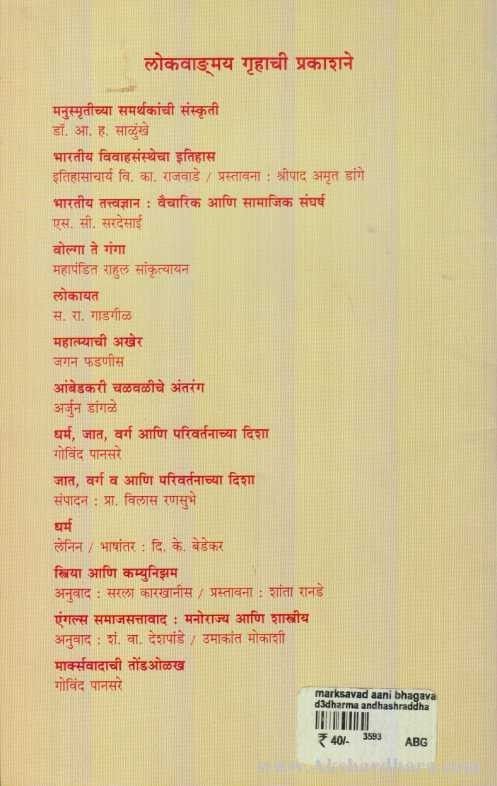 लोकवाङ्मय गृहाची प्रकाशने
मनुस्मृतीच्या समर्थकांची संस्कृती
डॉ. आ. ह. साळुंखे
भारतीय विवाहसंस्थेचा इतिहास
इतिहासाचार्य वि. का. राजवाडे / प्रस्तावना : श्रीपाद अमृत डांगे
भारतीय तत्त्वज्ञान : वैचारिक आणि सामाजिक संघर्ष
एस. सी. सरदेसाई
वोल्गा ते गंगा
महापंडित राहुल सांकृत्यायन
लोकायत
स. रा. गाडगीळ
महात्म्याची अखेर
जगन फडणीस
आंबेडकरी चळवळीचे अंतरंग
अर्जुन डांगळे
धर्म, जात, वर्ग आणि परिवर्तनाच्या दिशा
गोविंद पानसरे
जात, वर्ग व आणि परिवर्तनाच्या दिशा
संपादन : प्रा. विलास रणसुभे
धर्म
लेनिन / भाषांतर : दि. के. बेडेकर
स्त्रिया आणि कम्युनिझम
अनुवाद : सरला कारखानीस / प्रस्तावना : शांता रानडे
एंगल्स समाजसत्तावाद : मनोराज्य आणि शास्त्रीय
अनुवाद : शं. वा. देशपांडे / उमाकांत मोकाशी
मार्क्सवादाची तोंडओळख
गोविंद पानसरे
marksavad aani bhagava
d3dharma andhashraddha
₹ 40/- 3593 ABG
www.Akshardhara.com